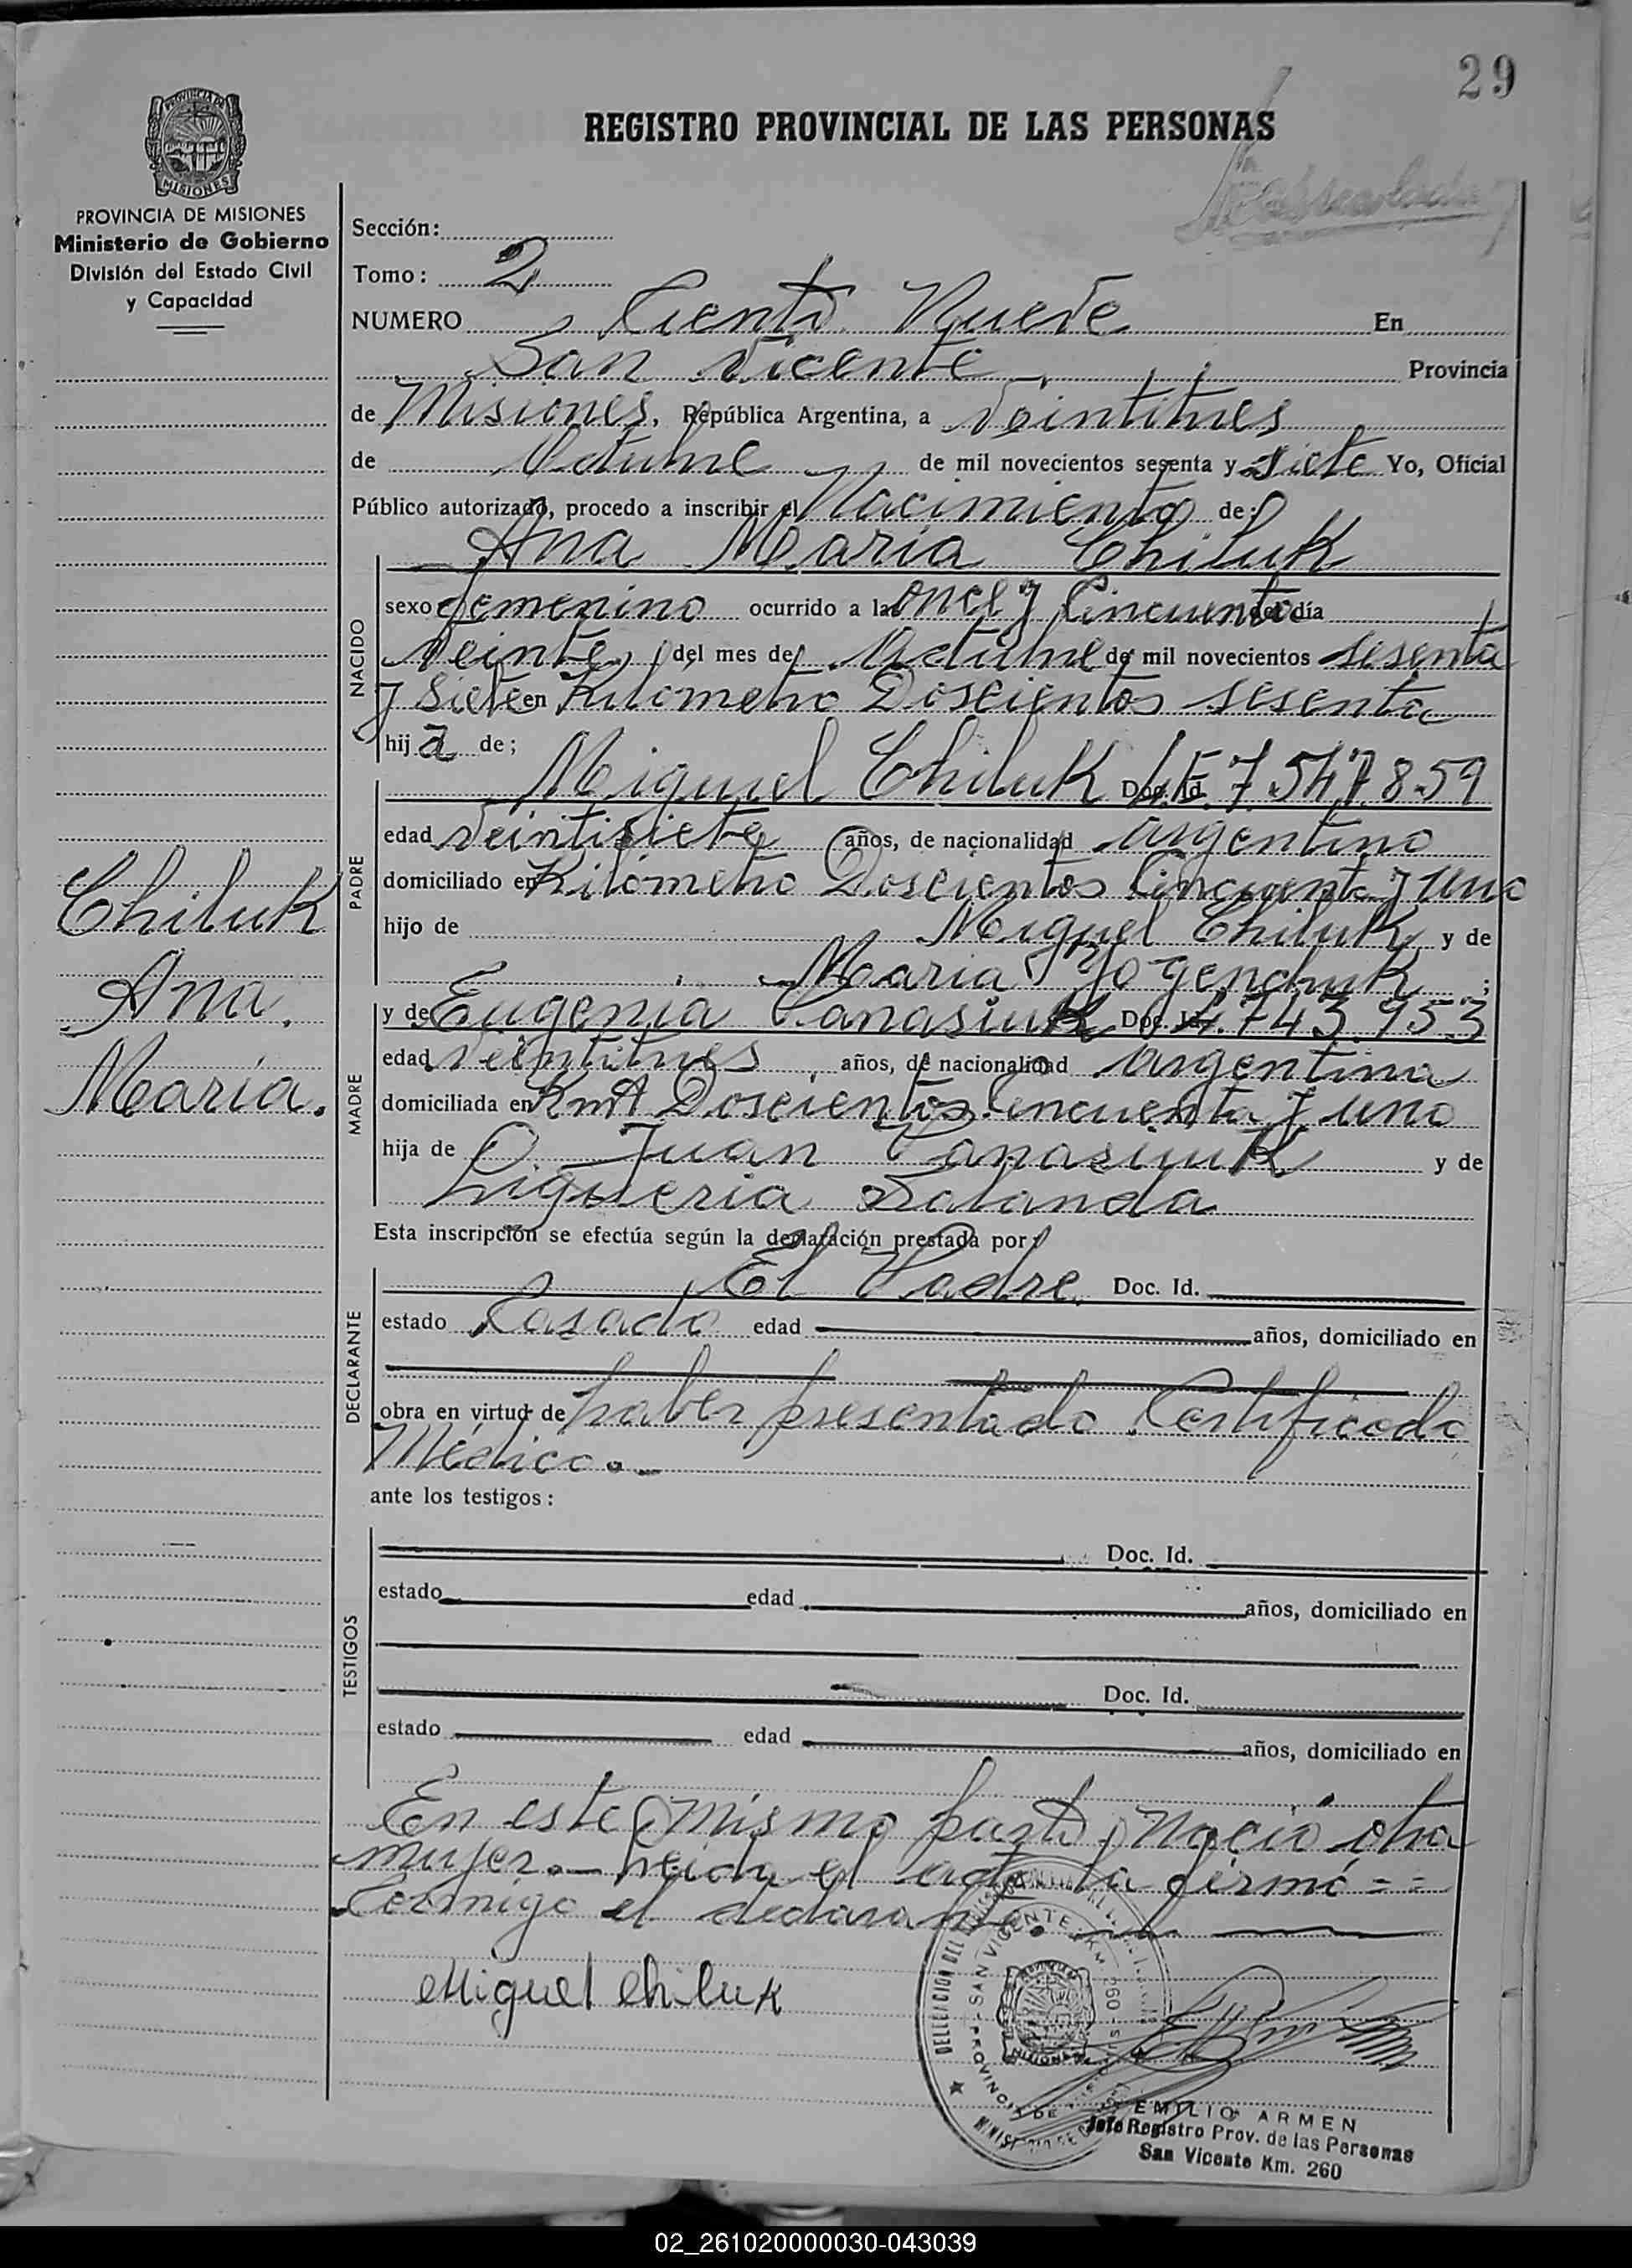 29
REGISTRO PROVINCIAL DE LAS PERSONAS
PROVINCIA DE MISIONES
MISIONES
PROVINCIA DE MISIONES
Ministerio de Gobierno
División del Estado Civil
y Capacidad
Sección:
Tomo: 2
NUMERO Ciento Nueve En
San Vicente Provincia
de Misiones, República Argentina, a Veintitres
de Octubre de mil novecientos sesenta y siete Yo, Oficial
Público autorizado, procedo a inscribir el Nacimiento de:
Ana Maria Chiluk
NACIDO
sexo femenino ocurrido a las once y Cincuenta del día
Veinte del mes de Octubre de mil novecientos sesenta
y Siete en Kilometro Doscientos sesenta
hija de;
PADRE
Miguel Chiluk Doc. Id. L.E. 7.547.859
edad Veintisiete años, de nacionalidad argentino
domiciliado en Kilometro Doscientos Cincuenta y uno
hijo de Miguel Chiluk y de
Maria ;
MADRE
y de Eugenia Panasiuk Doc. Id. 4.743.953
edad Veintitres años, de nacionalidad argentina
domiciliada en Kmt Doscientos Cincuenta y uno
hija de Juan Panasiuk y de
Chiluk
Ana
María.
Esta inscripción se efectúa según la declaración prestada por:
DECLARANTE
El Padre. Doc. Id.
estado Casado edad años, domiciliado en
obra en virtud de haber presentado Certificado
Médico.-
ante los testigos:
TESTIGOS
Doc. Id.
estado edad años, domiciliado en
Doc. Id.
estado edad años, domiciliado en
En este mismo parto, Nació otra
mujer.- Leida el acta la firmó ==
Conmigo el declarante.
Miguel Chiluk
SAN VICENTE KM 260
PROVINCIA DE
EMILIO ARMEN
Jefe Registro Prov. de las Personas
San Vicente Km. 260
02_261020000030-043039